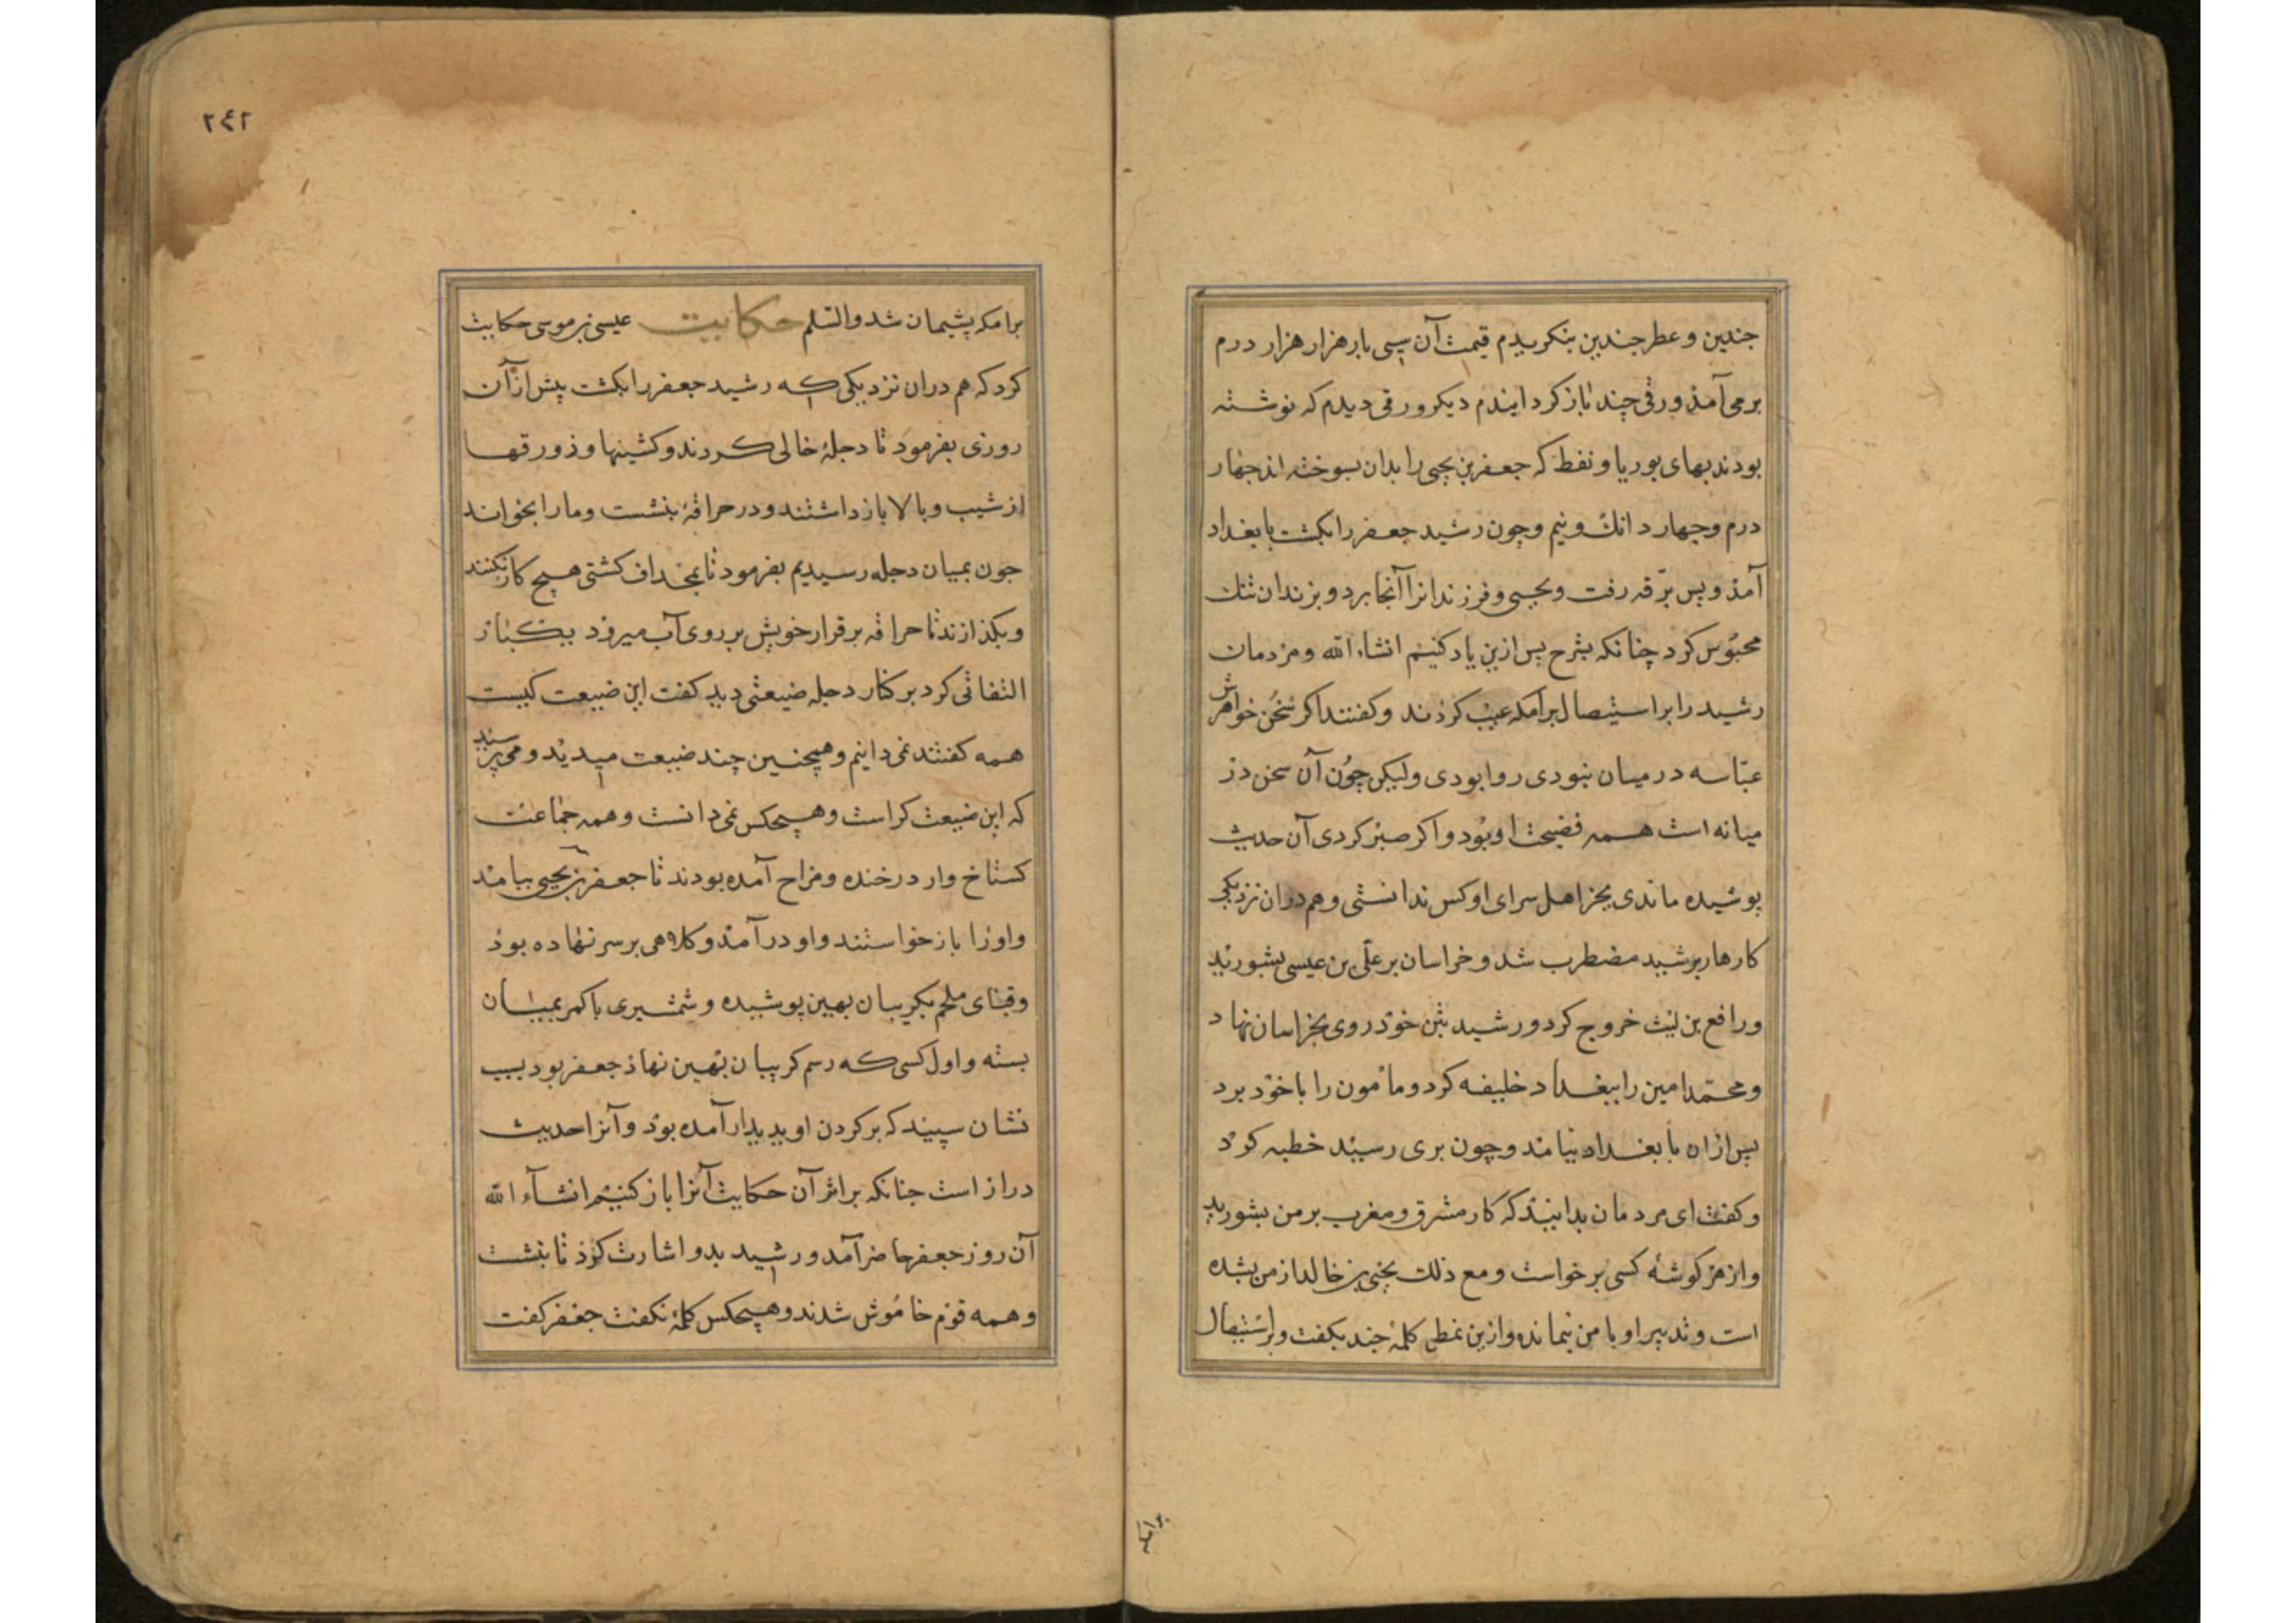 جندین و عطر جندین بنکریدم قیمت آن سی بار هزار هزار درم
برمی آمذ ورقی چند باز کردانیدم دیکر ورقی دیدم که نوشته
بودند بهای بوریا و نفط که جعفر بن یحیی را بدان بسوخته اند جهار
درم و جهار دانک و نیم و چون رشید جعفر را بکشت با بغداد
آمذ و پس برقه رفت و یحیی و فرزندانرا آنجا برد و بزندان تنک
محبوس کرد چنانکه بشرح پس ازین یاد کنیم انشاء الله و مردمان
رشید را بر استیصال برامکه عیب کردند و کفتند اکر سخن خواهرش
عباسه در میان نبودی روا بودی ولیکن چون آن سخن در
میانه است همه فضیحت او بود و اکر صبر کردی آن حدیث
پوشیده ماندی بجز اهل سرای او کس ندانستی و هم در ان نزدیکی
کارها بر رشید مضطرب شد و خراسان بر علی بن عیسی بشورید
و رافع بن لیث خروج کرد و رشید بتن خوذ روی بخراسان نهاد
و محمد امین را ببغداد خلیفه کرد و مأمون را با خوذ برد
پس از ان با بغداد نیامد و چون بری رسید خطبه کرد
و کفت ای مردمان بدانیذ که کار مشرق و مغرب بر من بشورید
و از هر کوشه کسی برخواست و مع ذلک یحیی بن خالد از من بشده
است و تدبیر او با من نیمانده و ازین نمط کلمهٔ جند بکفت و بر استیصال
برامکه
٢٤٢
برامکه پشیمان شد والسلم حکایت عیسی بن موسی حکایت
کرد که هم دران نزدیکی که رشید جعفر را بکشت پیش از آن
روزی بفرمود تا دجله خالی کردند و کشتیها و زورقها
از شیب و بالا باز داشتند و در حراقهٔ بنشست و ما را بخواند
جون بمیان دجله رسیدیم بفرمود تا بمجداف کشتی هیچ کار نکنند
و بکذارند تا حراقه بر قرار خویش بر روی آب میروذ یکبار
التفاتی کرد بر کنار دجله ضیعتی دید کفت این ضیعت کیست
همه کفتند نمی دانیم و همچنین چند ضیعت میدید و می پرسید
که این ضیعت کراست و هیچکس نمی دانست و همه جماعت
کستاخ وار در خنده و مزاح آمده بودند تا جعفر بن یحیی بیامد
و اورا باز خواستند و او درآمد و کلاهی بر سر نهاده بوذ
و قبای ملحم بکریبان بهین پوشیده و شمشیری با کمر بمیان
بسته و اول کسی که رسم کریبان بهین نهاذ جعفر بود بسبب
نشان سپیذ که بر کردن او پدیدار آمده بوذ و آنرا حدیث
دراز است جنانکه بر اثر آن حکایت آنرا باز کنیم انشآء الله
آن روز جعفر حاضر آمد و رشید بدو اشارت کرذ تا بنشست
و همه قوم خاموش شدند و هیچکس کلمهٔ نکفت جعفر کفت